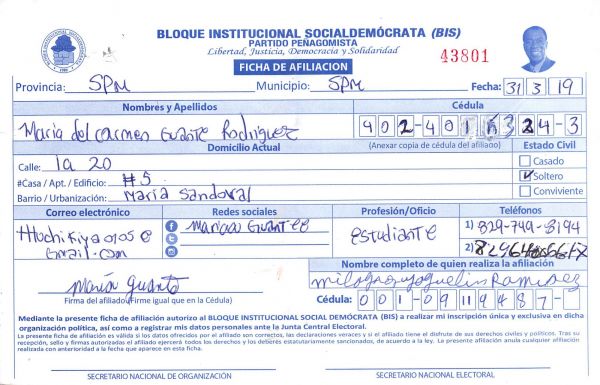 BLOQUE INSTITUCIONAL SOCIALDEMÓCRATA (BIS)
PARTIDO PEÑAGOMISTA
Libertad, Justicia, Democracia y Solidaridad
43801
FICHA DE AFILIACION
Provincia: SPM Municipio: SPM Fecha: 31 3 19
Nombres y Apellidos Cédula
Maria del carmen Guante Rodriguez 402-401 324-3
Domicilio Actual (Anexar copia de cédula del afiliado) Estado Civil
Calle: la 20 Casado
#Casa / Apt. / Edificio: #5 Soltero
Barrio / Urbanización: María Sandoval Conviviente
Correo electrónico Redes sociales Profesión/Oficio Teléfonos
Guante estudiante 1) 829-749-8194
Gmail.com 2)
Nombre completo de quien realiza la afiliación
María guante Ramirez
Firma del afiliado(Firme igual que en la Cédula) Cédula: 001-09119487-
Mediante la presente ficha de afiliación autorizo al BLOQUE INSTITUCIONAL SOCIAL DEMÓCRATA (BIS) a realizar mi inscripción única y exclusiva en dicha
organización política, así como a registrar mis datos personales ante la Junta Central Electoral.
La presente ficha de afiliación es válida si los datos ofrecidos por el afiliado son correctos, las declaraciones veraces y si el afiliado tiene el disfrute de sus derechos civiles y políticos. Tras su
recepción, sello y firmas autorizadas el afiliado ejercerá todos los derechos y los debéres estatutariamente sancionados, de acuerdo a la ley. La presente afiliación anula cualquier afiliación
realizada con anterioridad a la fecha que aparece en esta ficha.
SECRETARIO NACIONAL DE ORGANIZACIÓN SECRETARIO NACIONAL ELECTORAL